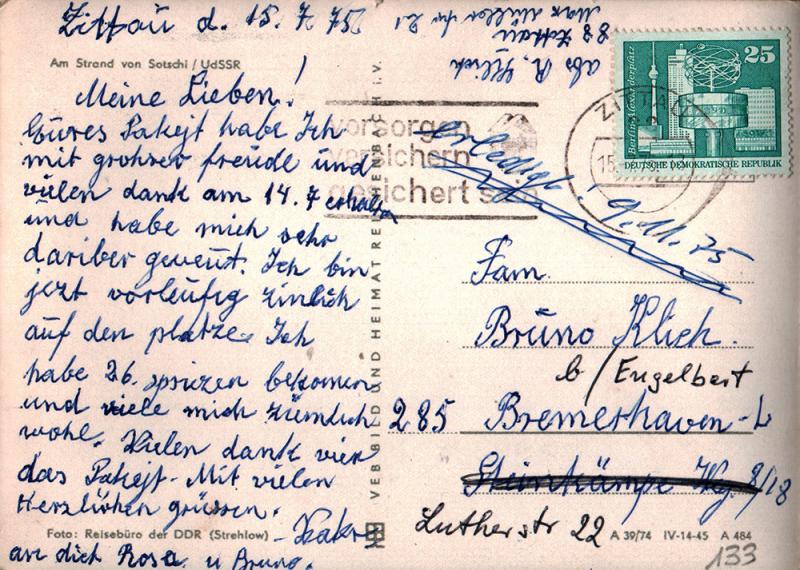 Zittau d. 15. 7 75
abs R. Klich
88 Zittau
Max Müller Str
Am Strand von Sotschi / UdSSR
Meine Lieben!
Eures Pakejt habe Ich
mit grohser freude und
vielen dank am 14.7 erhalten
und habe mich sehr
dariber geweut. Ich bin
jezt vorleufig zimlich
auf den platze. Ich
habe 26. sprizen bekomen
und viele mich ziemlich
wohl. Vielen dank vier
das Pakejt. Mit vielen
Herzlichen grüssen.
an dich Rosa u Bruno.
Foto: Reisebüro der DDR (Strehlow)
VEB BILD UND HEIMAT REICHENBACH I. V.
vorsorgen
versichern
gesichert sein
ZITTAU
15.
25
Berlin-Alexanderplatz
DEUTSCHE DEMOKRATISCHE REPUBLIK
Erledigt! 9.11.75
Fam.
Bruno Klich.
b/Engelbart
285 Bremerhaven-L
Steinkämpe Wg. 8/18
Lutherstr 22
A 39/74 IV-14-45 A 484
133